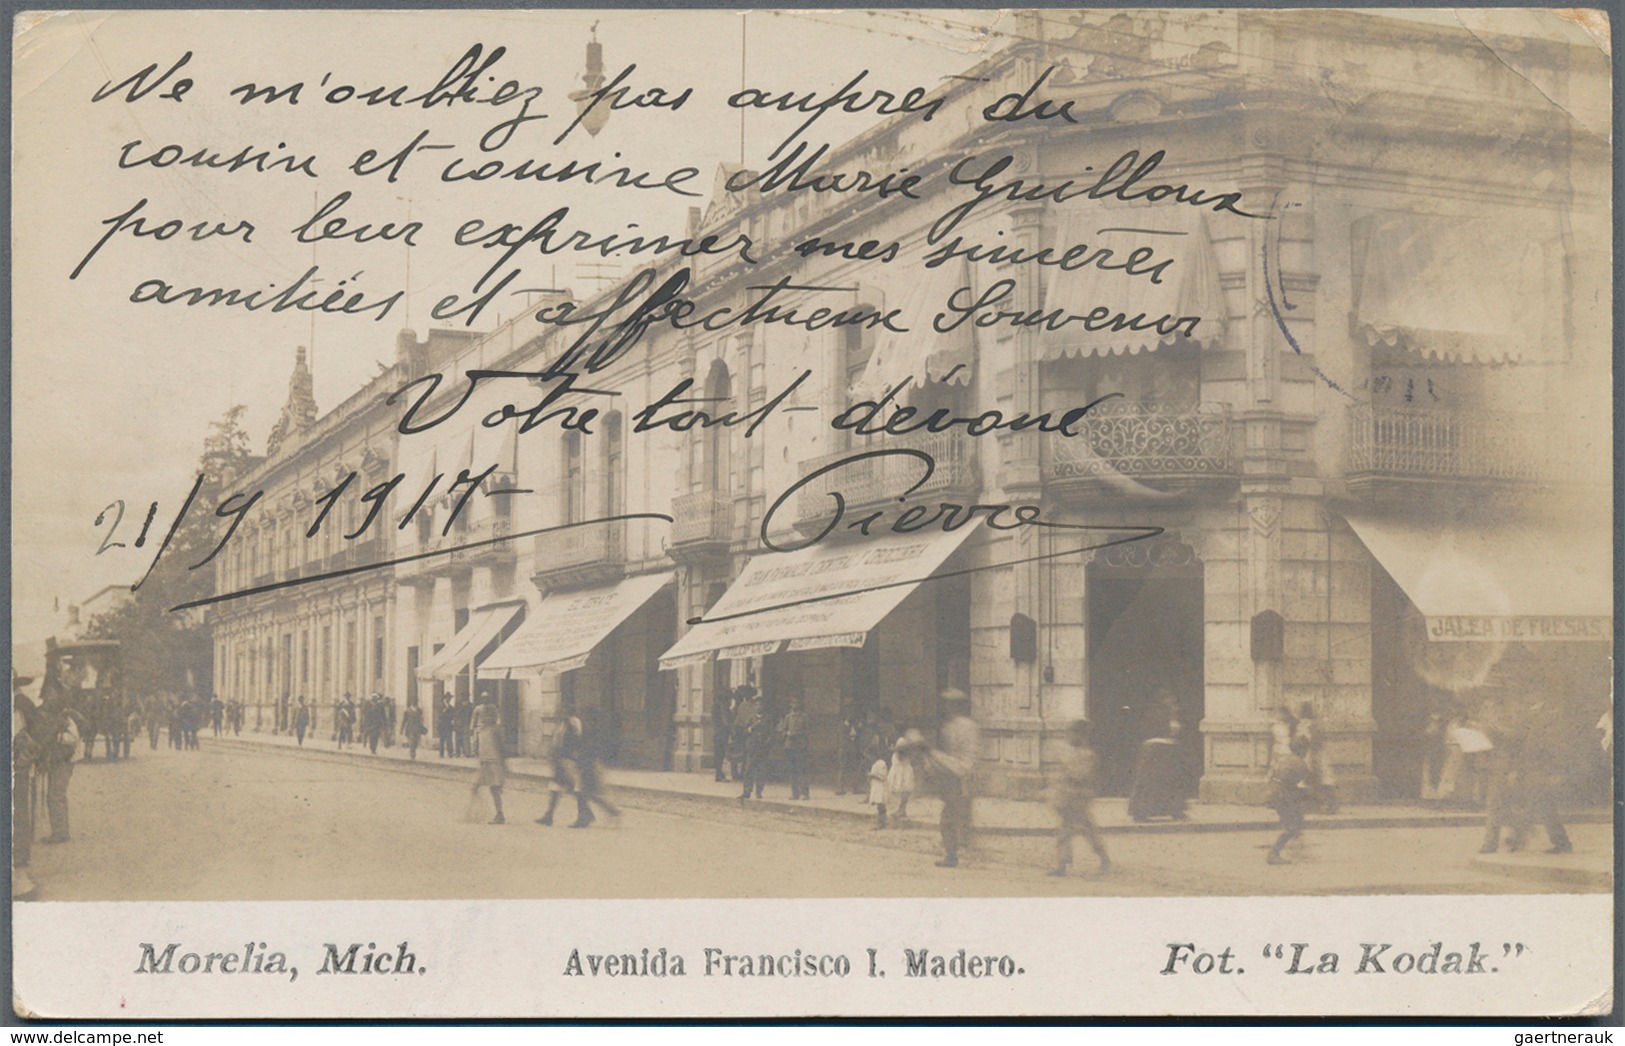 Ne m'oubliez pas auprès du
cousin et cousine Marie Guilloux
pour leur exprimer mes sincères
amitiées et affectueux Souvenir
Votre tout dévoué
21/9 1917 Pierre
GRAN FARMACIA CENTRAL Y DROGUERIA
JALEA DE FRESAS
Morelia, Mich. Avenida Francisco I. Madero. Fot. "La Kodak."
www.delcampe.net gaertnerauk